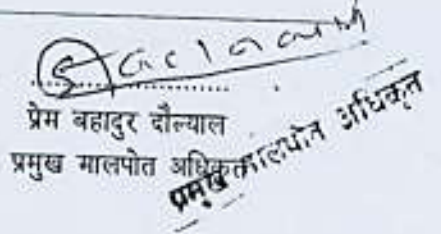 प्रेम बहादुर दौल्याल
प्रमुख मालपोत अधिकृत
प्रमुख मालपोत अधिकृत